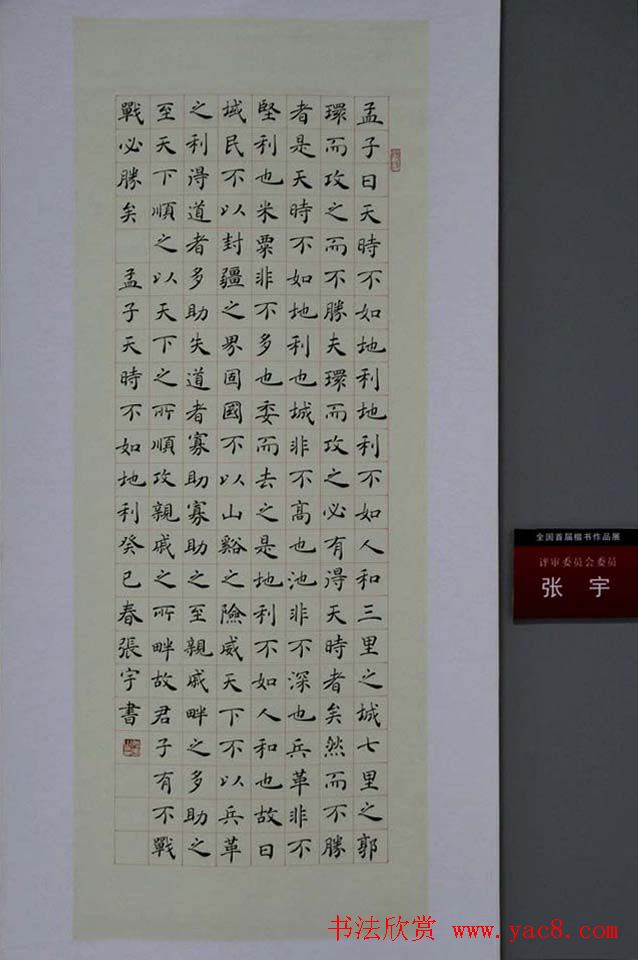 孟子曰天時不如地利地利不如人和三里之城七里之郭
環而攻之而不勝夫環而攻之必有得天時者矣然而不勝
者是天時不如地利也城非不高也池非不深也兵革非不
堅利也米粟非不多也委而去之是地利不如人和也故曰
域民不以封疆之界固國不以山谿之險威天下不以兵革
之利得道者多助失道者寡助寡助之至親戚畔之多助之
至天下順之以天下之所順攻親戚之所畔故君子有不戰
戰必勝矣 孟子天時不如地利癸巳春張宇書
全国首届楷书作品展
评审委员会委员
张 宇
书法欣赏 www.yac8.com